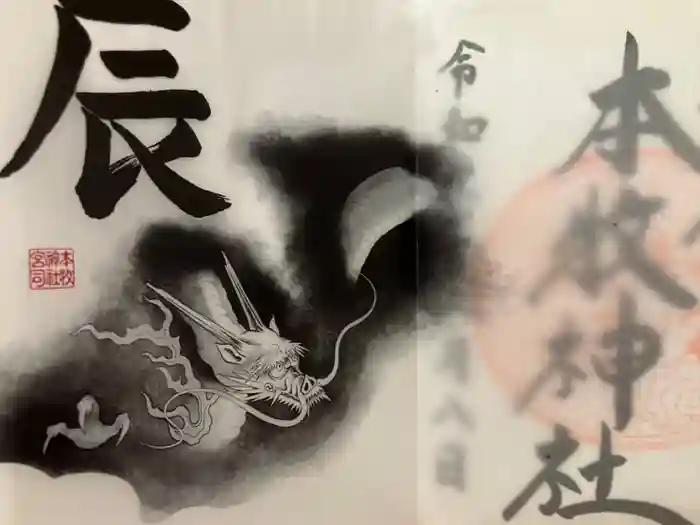 本牧神社
令和
辰
本牧
神社
宮司